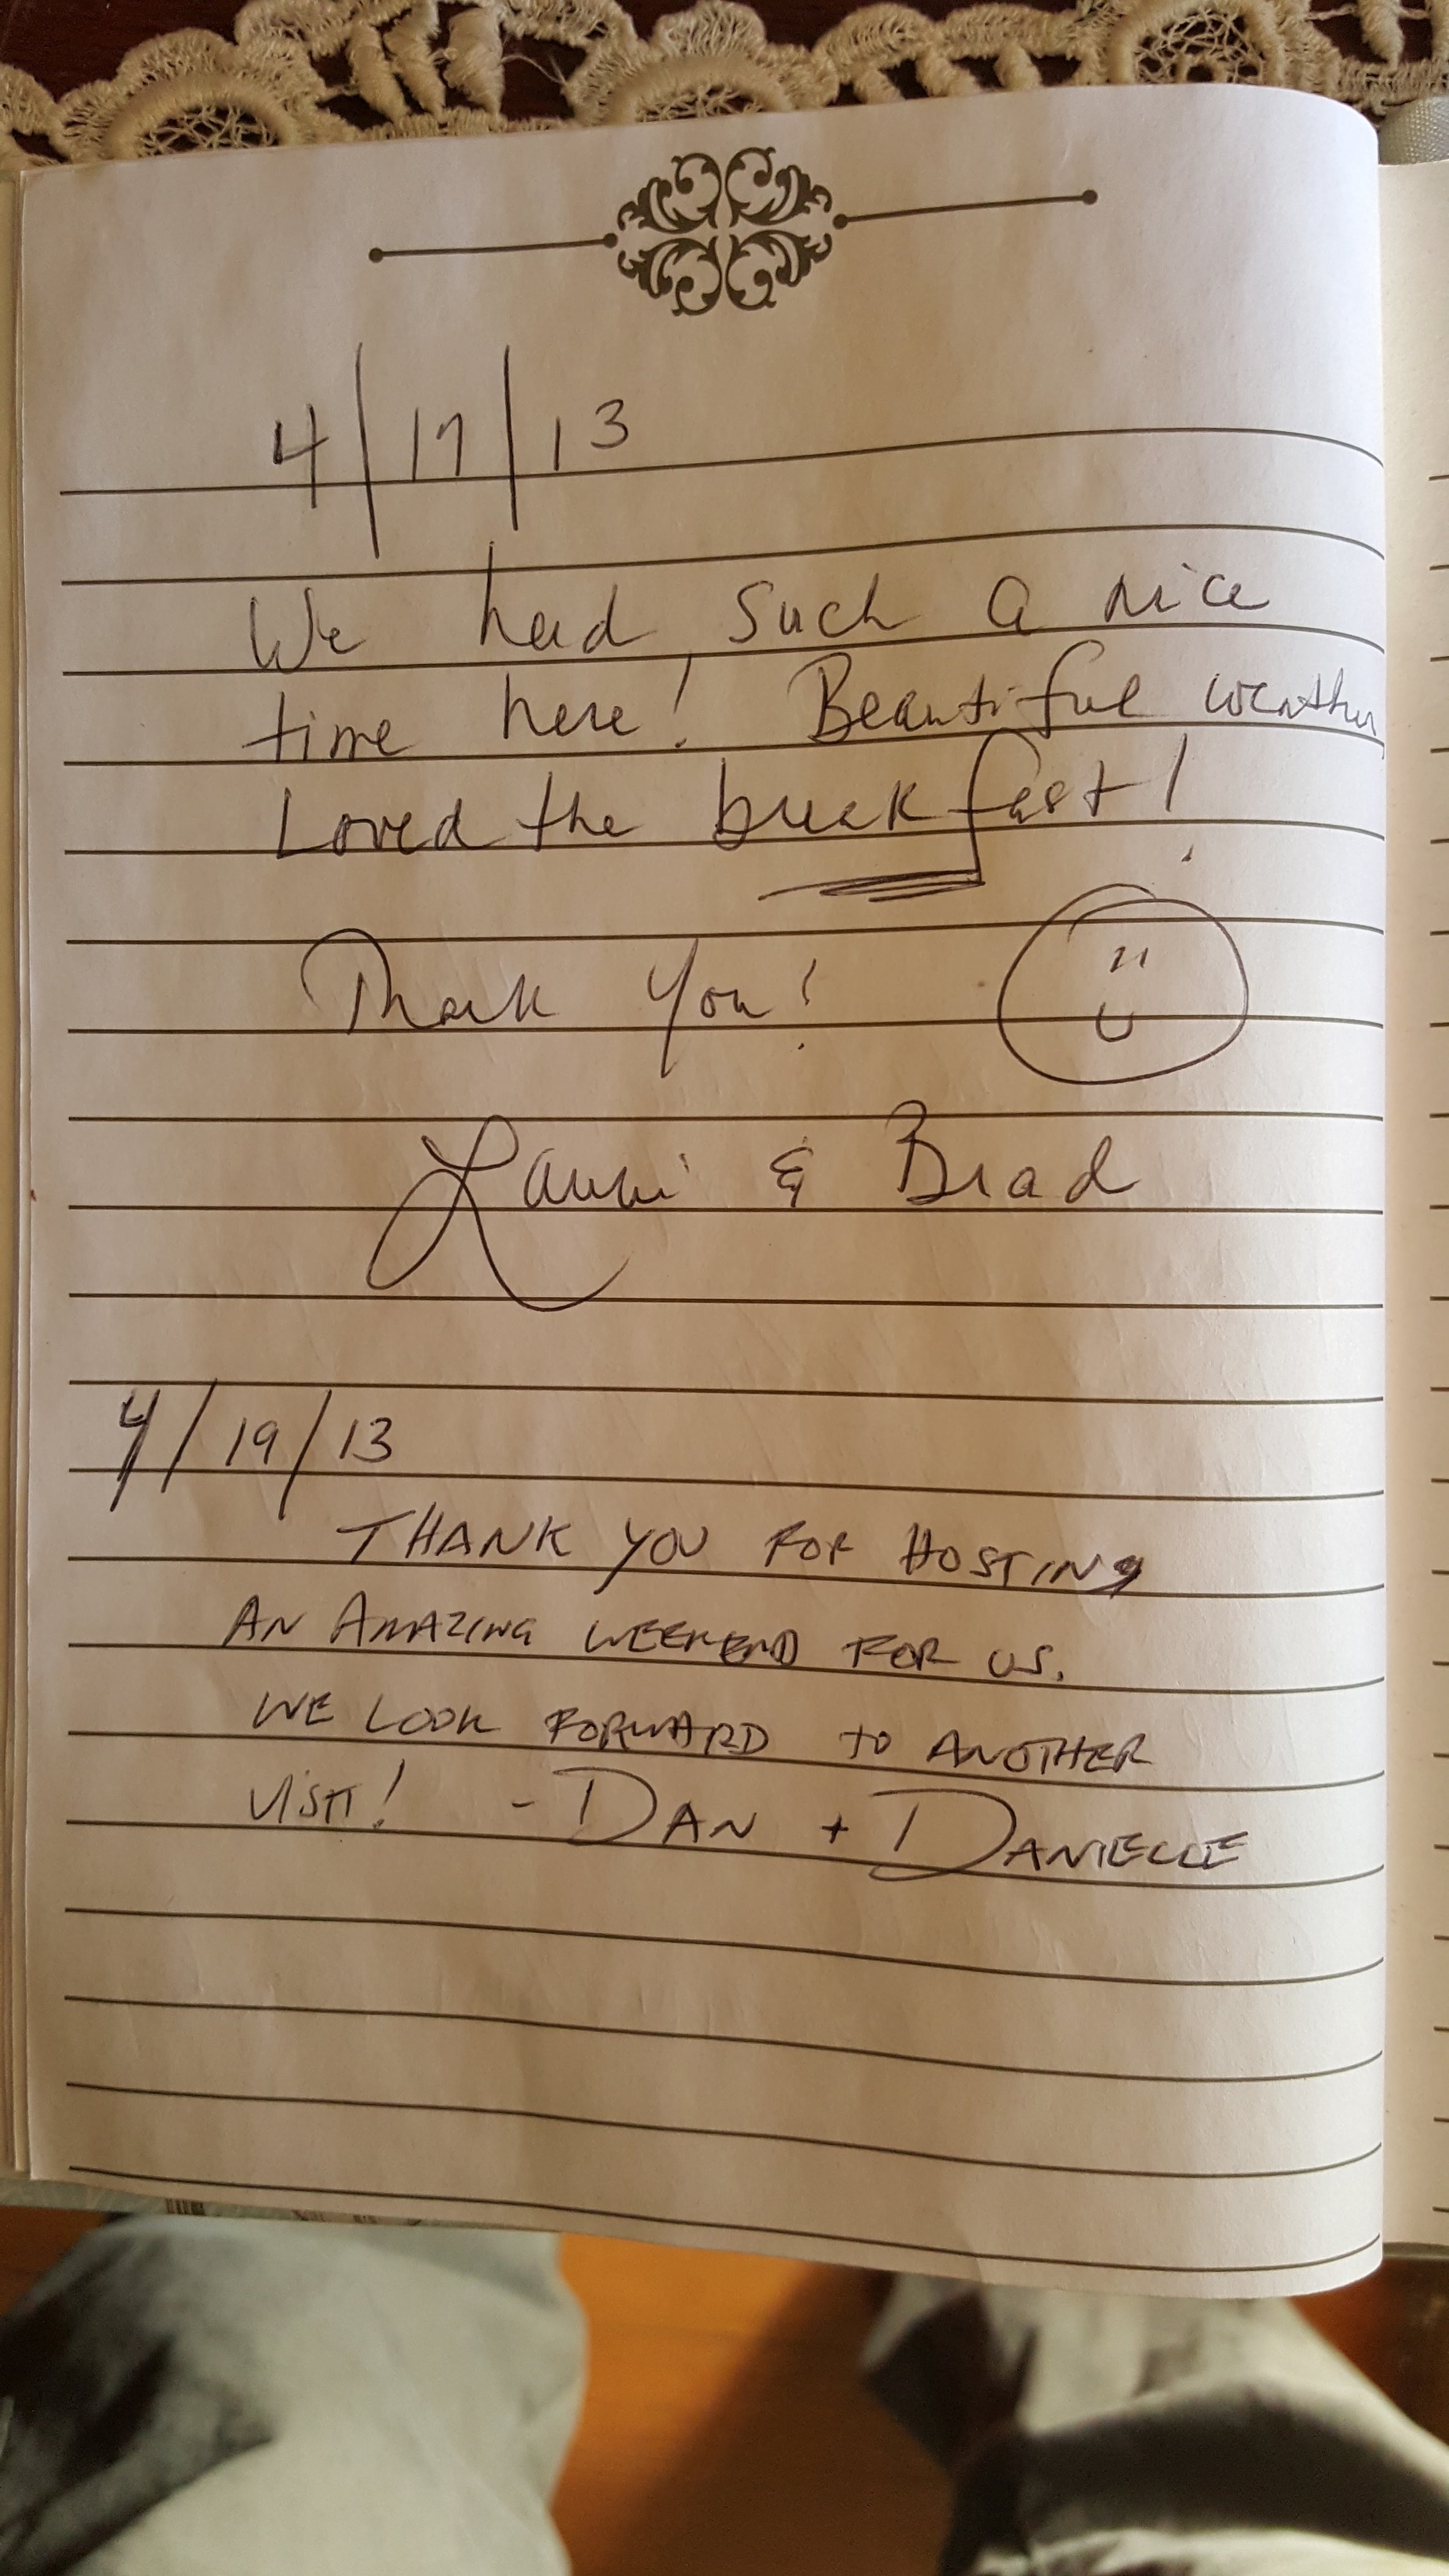 4/17/13
We had such a nice
time here! Beautiful weather
Loved the breakfast!
Thank you!
Laurri & Brad
4/19/13
THANK YOU FOR HOSTING
AN AMAZING WEEKEND FOR US.
WE LOOK FORWARD TO ANOTHER
VISIT! - DAN + DANIELLE